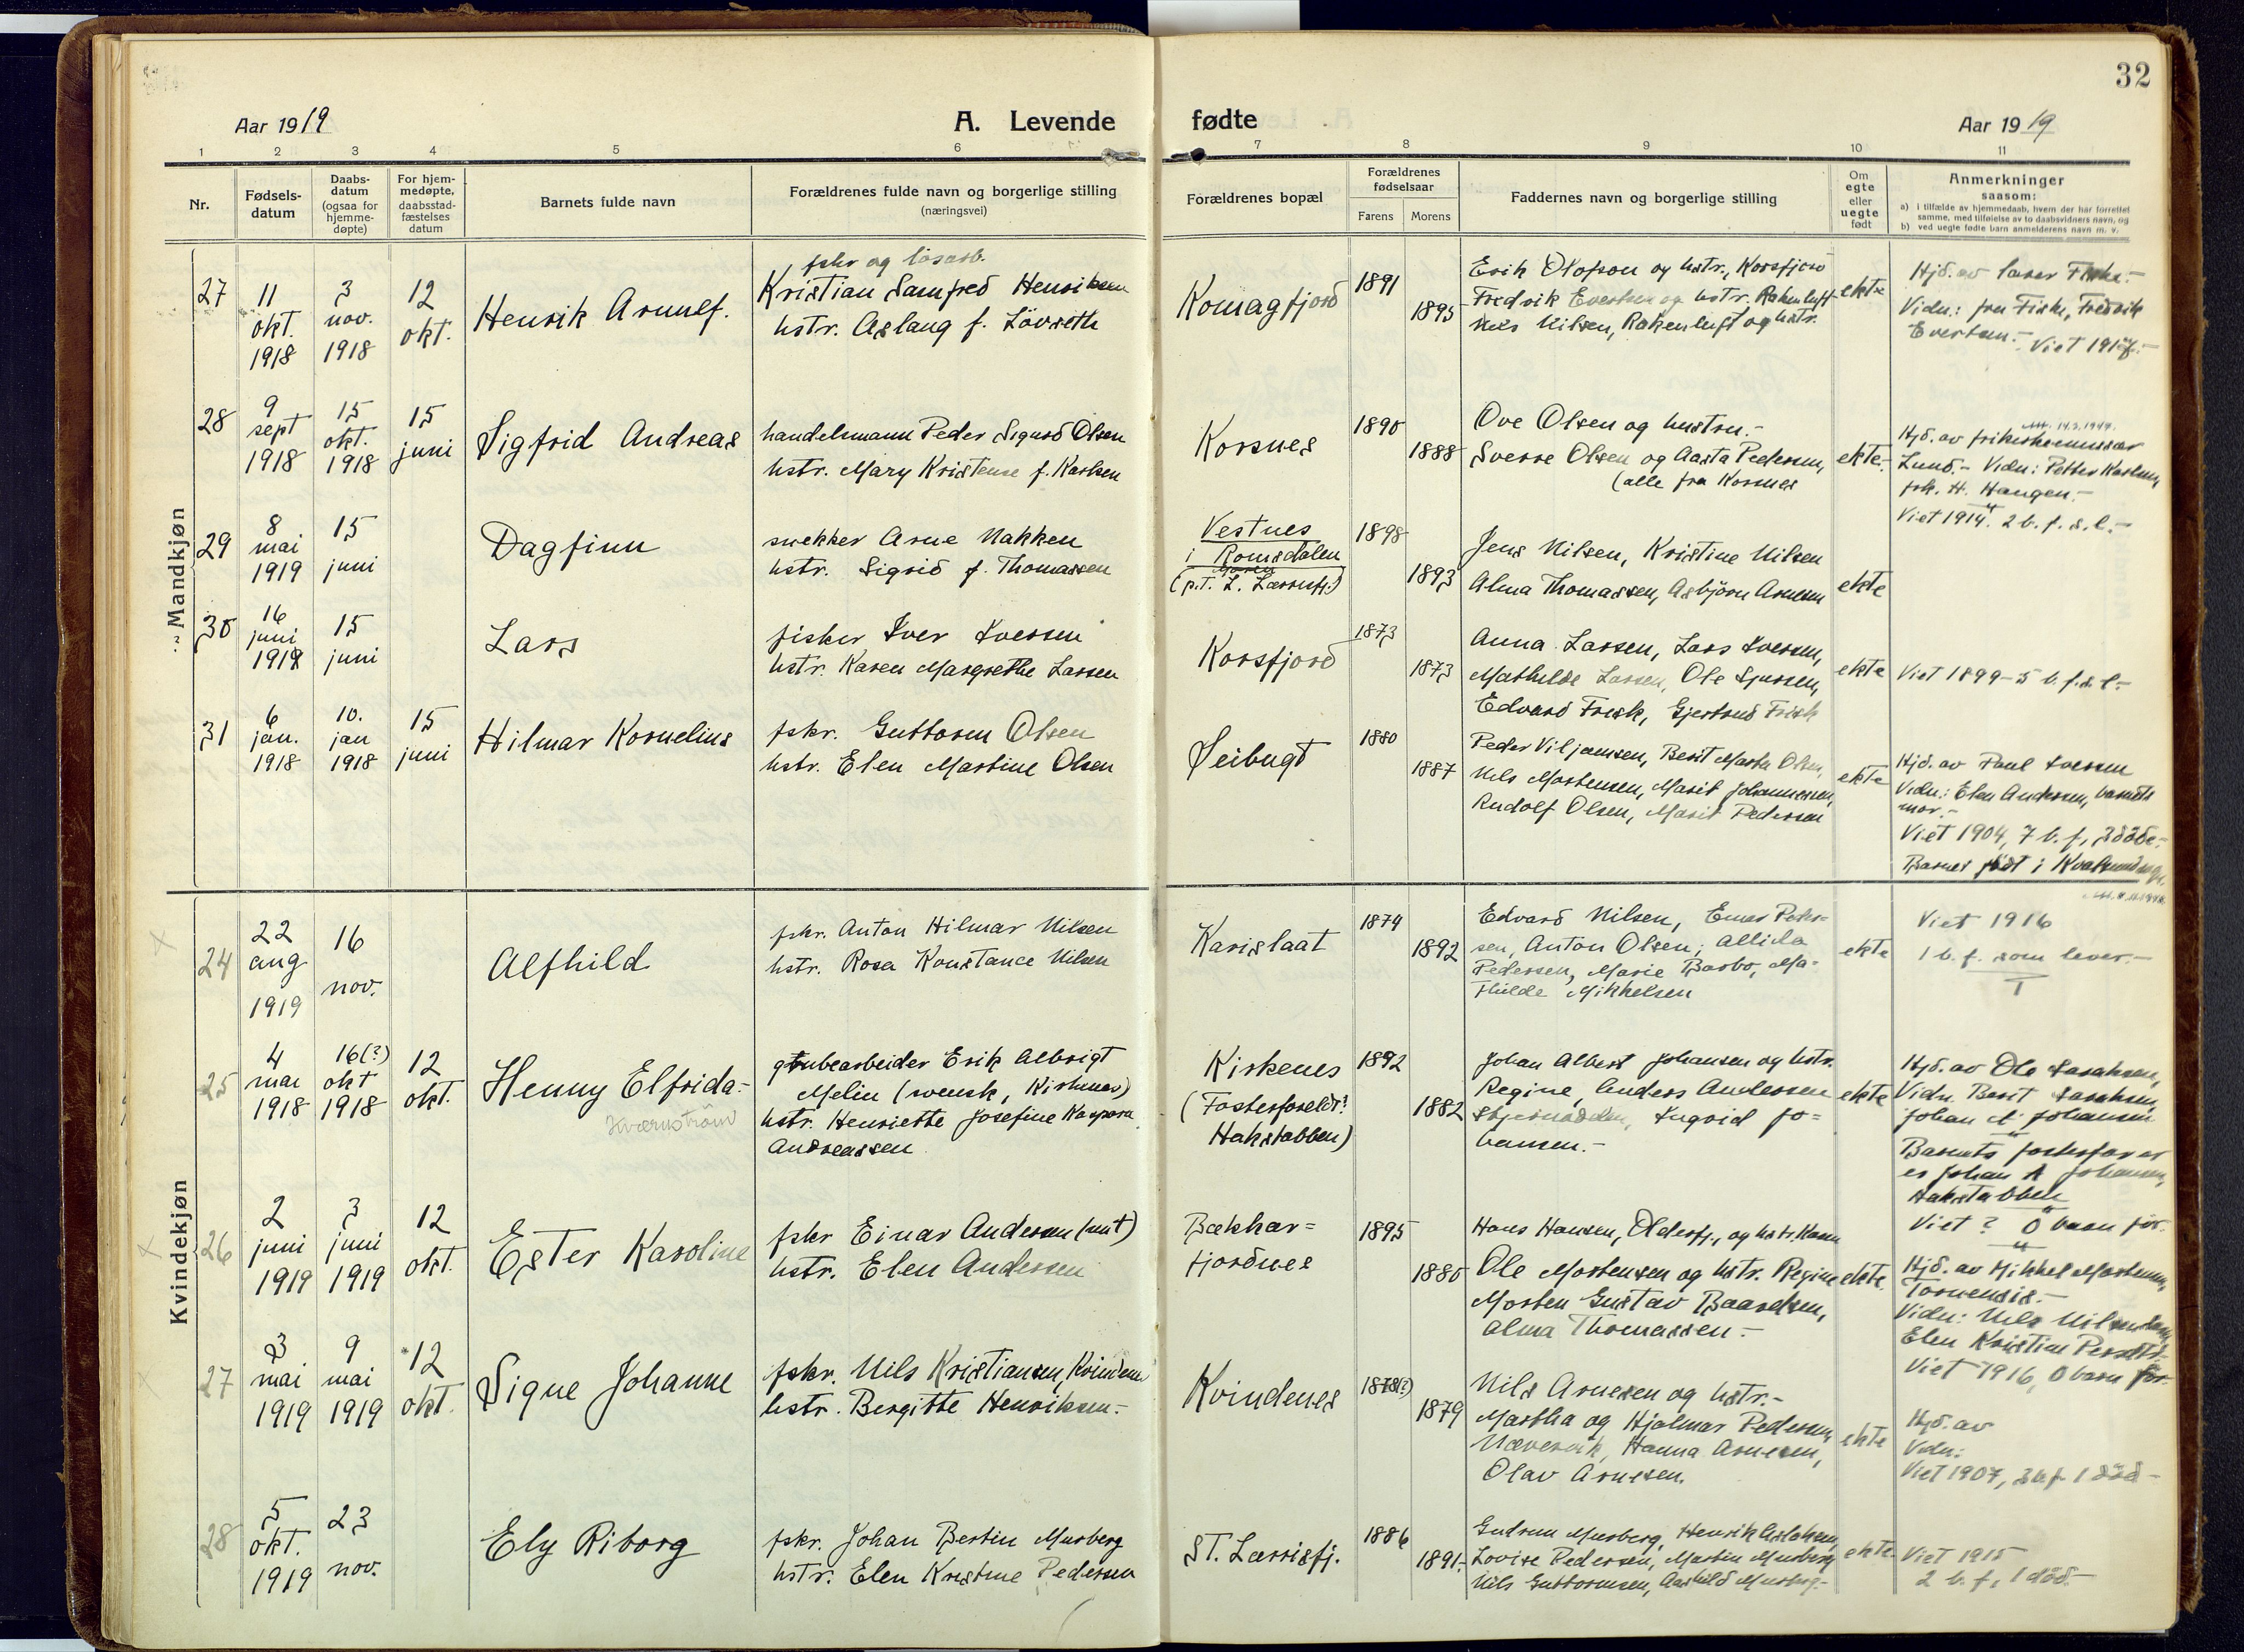 32
Aar 1919
A. Levende
fødte
Aar 1919
1 2 3 4 5 6 7 8 9 10 11
Nr.
Fødsels-
datum
Daabs-
datum
(ogsaa for
hjemme-
døpte)
For hjem-
medøpte,
daabsstad-
fæstelses
datum
Barnets fulde navn
Forældrenes fulde navn og borgerlige stilling
(næringsvei)
Forældrenes bopæl
Forældrenes
fødselsaar
Farens Morens
Faddernes navn og borgerlige stilling
Om
egte
eller
uegte
født
Anmerkninger
saasom:
a) i tilfælde av hjemmedaab, hvem der har forrettet
samme, med tilføielse av to daabsvidners navn, og
b) ved uegte fødte barn anmelderens navn m. v.
Mandkjøn
27
11
okt.
1918
3
nov.
1918
12
okt.
Henrik Arnulf.
fskr og løsarb.
Kristian Samfred Henriksen
hstr. Aslaug f. Lövseth
Komagfjord
1891
1895
Erik Olofson og hstr., Korsfjord
Fredrik Evertsen og hstr. Rakenluft
Nils Nilsen, Rakenluft og hstr.
ekte
Hjd. av lærer Fiske.-
Vidn: fru Fiske, Fredrik
Evertsen.- Viet 1917.-
28
9
sept
1918
15
okt.
1918
15
juni
Sigfrid Andreas
handelsmann Peder Sigurd Olsen
hstr. Mary Kristense f. Karlsen
Korsnes
1890
1888
Ove Olsen og hustru.-
Sverre Olsen og Aasta Pedersen,
(alle fra Korsnes
ekte.-
14.3.1944.
Hjd. av frikirke
Lund.- Vidn: Petter Karlsen,
fsk. H. Haugen.-
Viet 1914. 2 b. f. s. l.-
29
8
mai
1919
15
juni
Dagfinn
snekker Arne Nakken
hstr. Sigrid f. Thomassen
Vestnes
i Romsdalen
(p.T. L. Lærrisfj.)
1898
1893
Jens Nilsen, Kristine Nilsen
Alma Thomassen, Asbjörn Arnesen
ekte
30
16
juni
1919
15
juni
Lars
fisker Iver Iversen
hstr. Karen Margrethe Larsen
Korsfjord
1873
1873
Anna Larsen, Lars Iversen,
Mathilde Larsen, Ole Sjursen,
Edvard Frisk, Gjertrud Frisk
ekte
Viet 1899 - 5 b. f. s. l.-
31
6
jan.
1918
10.
jan
1918
15
juni
Hilmar Kornelius
fskr. Guttorm Olsen
hstr. Elen Martine Olsen
Seibugt
1880
1887
Peder Viljamsen, Berit Marta Olsen,
Nils Mortensen, Marit Johannesen,
Rudolf Olsen, Marit Pedersen
ekte
Hjd. av Paul Iversen
Vidn: Elen Andersen, barnets
mor.-
Viet 1904, 7 b. f., 3 döde.-
Barnet født i Kvalsund
Kvindekjøn
24
22
aug
1919
16
nov.
Alfhild
fskr. Anton Hilmar Nilsen
hstr. Rosa Konstance Nilsen
Karislaat
1874
1892
Edvard Nilsen, Emer Peder-
sen, Anton Olsen, Allida
Pedersen, Marie Barbo, Ma-
thilde Mikkelsen
ekte
Viet 1916
1 b. f. som lever.-
25
4
mai
1918
16(?)
okt
1918
12
okt.
Henny Elfrida.-
Kværnström
grubearbeider Erik Albrigt
Melin (svensk, Kirkenes)
hstr. Henriette Josefine Kaspara
Andreassen
Kirkenes
(Fosterforeldr?
Hakstabben)
1892
1882
Johan Albert Johansen og hstr.
Regine, Anders Andersen
Stjernodden, Ingrid Jo=
hansen.-
ekte
Hjd. av Ole Isaksen,
Vidn. Berit Isaksen,
Johan A Johansen
Barnets fosterfar er
er Johan A Johansen,
Hakstabben
Viet? 0 barn før.
26
2
juni
1919
3
juni
1919
12
okt.
Ester Karoline
fskr Einar Andersen (unt)
hstr. Elen Andersen
Bækkar=
fjordnes
1895
1880
Hans Hansen, Olderfj., og hstr. Karen
Ole Mortensen og hstr. Regine
Morten Gustav Baardsen,
Alma Thomassen.-
ekte.
Hjd. av Mikkel Mortensen,
Tornensis.-
Vidn: Nils Nilsen
Elen Kristine
Viet 1916, 0 barn før.
27
3
mai
1919
9
mai
1919
12
okt.
Signe Johanne
fskr. Nils Kristiansen, Kvindenes
hstr. Bergitte Henriksen.-
Kvindenes
1878(?)
1879
Nils Arnesen og hstr.-
Martha og Hjalmar Pedersen,
Nævervik, Hanna Arnesen,
Olav Arnesen.
ekte
Hjd. av
Vidn:
Viet 1907, 3 b.f. 1 död-
28
5
okt.
1919
23
nov.
Ely Riborg
fskr. Johan Bertin Murberg
hstr. Elen Kristine Pedersen
ST. Lærrisfj.
1886
1891.-
Gudrun Murberg, Henrik Aslaksen,
Lovise Pedersen, Martin Murberg
Nils Guttormsen, Aashild Murberg.-
ekte
Viet 1915
2 b. f., 1 död.-